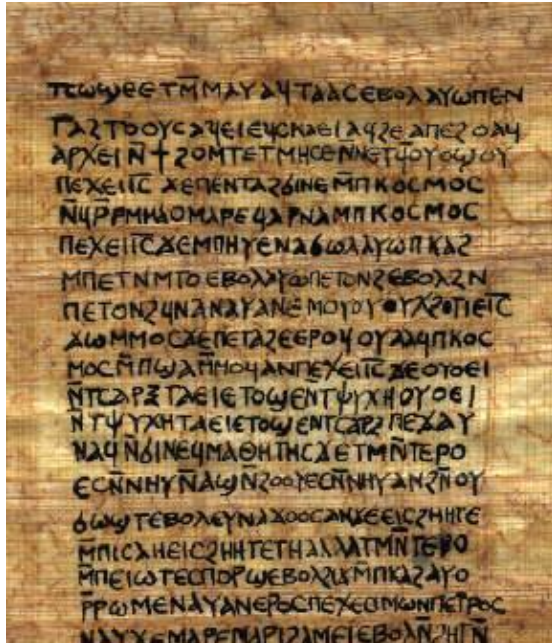 ⲡⲥⲱϣⲉⲉⲧⲙ̄ⲙⲁⲩⲁϥⲧⲁⲁⲥⲉⲃⲟⲗⲁⲩⲱⲡⲉⲛ
ⲧⲁϩⲧⲟⲟⲩⲥⲁϥⲉⲓⲉϥⲥⲕⲁⲉⲓⲁϥϩⲉⲁⲡⲉϩⲟⲁϥ
ⲁⲣⲭⲉⲓⲛ̄ϯϩⲟⲙⲧⲉⲧⲙⲏⲥⲉⲛⲛⲉⲧϥⲟⲩⲟϣⲟⲩ
ⲡⲉϫⲉⲓ̅ⲥ̅ϫⲉⲡⲉⲛⲧⲁϩϭⲓⲛⲉⲙ̄ⲡⲕⲟⲥⲙⲟⲥ
ⲛ̄ϥⲣ̄ⲣⲙⲙⲁⲟⲙⲁⲣⲉϥⲁⲣⲛⲁⲙⲡⲕⲟⲥⲙⲟⲥ
ⲡⲉϫⲉⲓ̅ⲥ̅ϫⲉⲙⲡⲏⲩⲉⲛⲁϭⲱⲗⲁⲩⲱⲡⲕⲁϩ
ⲙⲡⲉⲧⲛⲙⲧⲟⲉⲃⲟⲗⲁⲩⲱⲡⲉⲧⲟⲛϩⲉⲃⲟⲗϩⲛ
ⲡⲉⲧⲟⲛϩϥⲛⲁⲛⲁⲩⲁⲛⲉⲙⲟⲩⲟⲩⲭϩⲟⲧⲓⲉⲓ̅ⲥ̅
ϫⲱⲙⲙⲟⲥϫⲉⲡⲉⲧⲁϩⲉⲉⲣⲟϥⲟⲩⲁⲁϥⲡⲕⲟⲥ
ⲙⲟⲥⲙ̄ⲡϣⲁⲙ̄ⲙⲟϥⲁⲛⲡⲉϫⲉⲓ̅ⲥ̅ϫⲉⲟⲩⲟⲉⲓ
ⲛ̄ⲧⲥⲁⲣⲝⲧⲁⲉⲓⲉⲧⲟϣⲉⲛ̄ⲧⲯⲩⲭⲏⲟⲩⲟⲉⲓ
ⲛⲧⲯⲩⲭⲏⲧⲁⲉⲓⲉⲧⲟϣⲉⲛⲧⲥⲁⲣⲝⲡⲉϫⲁⲩ
ⲛⲁϥⲛ̄ϭⲓⲛⲉϥⲙⲁⲑⲏⲧⲏⲥϫⲉⲧⲙⲛ̄ⲧⲉⲣⲟ
ⲉⲥⲛ̄ⲛⲏⲩⲛ̄ⲁϣⲛ̄ϩⲟⲟⲩⲉⲥⲛ̄ⲛⲏⲩⲁⲛϩⲛ̄ⲟⲩ
ϭⲱϣⲧⲉⲃⲟⲗⲉⲩⲛⲁϫⲟⲟⲥⲁⲛϫⲉⲉⲓⲥϩⲏⲏⲧⲉ
ⲙ̄ⲡⲓⲥⲁⲏⲉⲓⲥϩⲏⲏⲧⲉⲧⲏⲁⲗⲗⲁⲧⲙⲛ̄ⲧⲉⲣⲟ
ⲙ̄ⲡⲉⲓⲱⲧⲉⲥⲡⲟⲣϣⲉⲃⲟⲗϩⲓϫⲙ̄ⲡⲕⲁϩⲁⲩⲱ
ⲣ̄ⲣⲱⲙⲉⲛⲁⲩⲁⲛⲉⲣⲟⲥⲡⲉϫⲉⲥⲓⲙⲱⲛⲡⲉⲧⲣⲟⲥ
ⲛⲁⲩϫⲉⲙⲁⲣⲉⲙⲁⲣⲓϩⲁⲙⲉⲓⲉⲃⲟⲗⲛ̄ϩⲏⲧⲛ̄